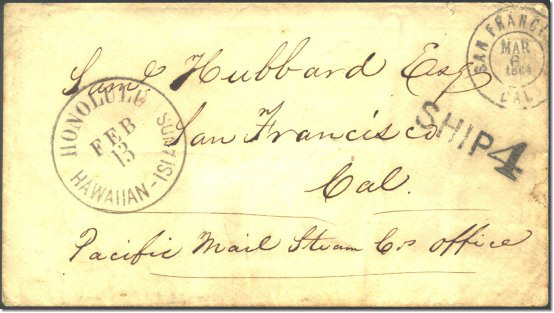 Saml Hubbard Esq
San Francisco
Cal.
Pacific Mail Steam Co's Office
HONOLULU
FEB
13
HAWAIIAN-ISLANDS
SAN FRANCISCO
MAR
6
1864
CAL.
SHIP 4